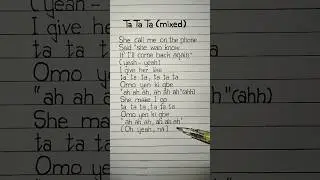 Ta Ta Ta (mixed)
She call me on the phone
Said "she wan know
If I'll come back again"
(yeah - yeah)
I give her like
ta ta ta, ta ta ta
Omo yen ki gbe
"ah ah ah, ah ah ah" (ahh)
She make I go
ta ta ta, ta ta ta
Omo yen ki gbe
"ah ah ah, ah ah ah"
(Oh yeah, na)